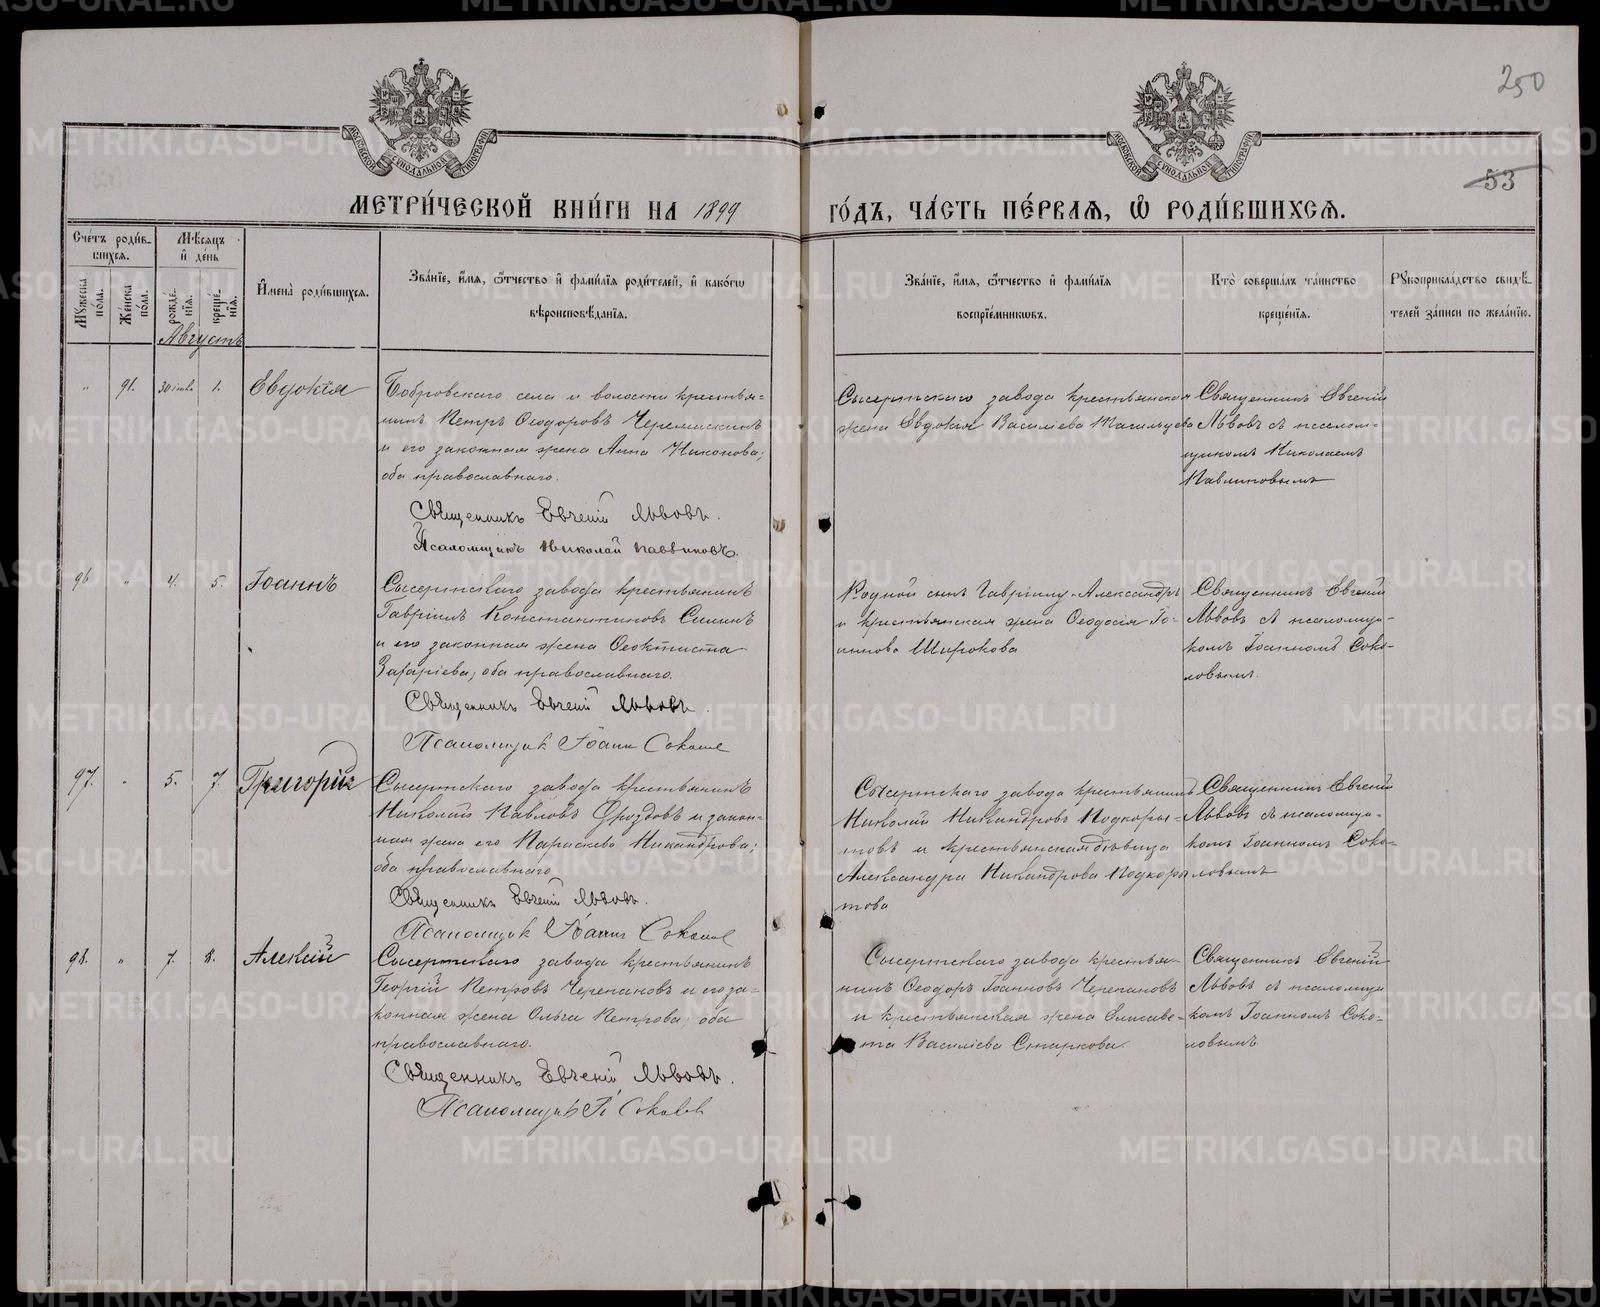 250
53
МОСКОВСКОЙ СѴНОДАЛЬНОЙ ТИПОГРАФІИ
МОСКОВСКОЙ СѴНОДАЛЬНОЙ ТИПОГРАФІИ
МЕТРИ́ЧЕСКОЙ КНИ́ГИ НА 1899 ГО́ДЪ, ЧА́СТЬ ПЕ́РВАЯ, Ѡ҆ РОДИ́ВШИХСЯ.
Сче́тъ роди́вшихся.
Му́жеска по́ла.
Же́нска по́ла.
Мѣ́сяцъ и҆ де́нь
рожде́нія.
креще́нія.
И҆мена̀ роди́вшихся.
Зва́ніе, и҆́мя, ѻ҆́тчество и҆ фами́лія роди́телей, и҆ како́гѡ
вѣроисповѣ́данія.
Зва́ніе, и҆́мя, ѻ҆́тчество и҆ фами́лія
воспрїе́мниковъ.
Кто̀ соверша́лъ та́инство
креще́нія.
Рукоприкла́дство свидѣ́телей за́писи по жела́нію.
Августъ
" 91. 30 1. Евдокія
Бобровскаго села и волости крестья=
нинъ Петръ Ѳеодоровъ Черемискинъ
и его законная жена Анна Никонова;
оба православнаго.
Священникъ Евгеній Львовъ.
Псаломщикъ Николай Павлиновъ.
Сысертскаго завода крестьянская
жена Евдокія Василіева
Священникъ Евгеній
Львовъ съ псалом=
щикомъ Николаемъ
Павлиновымъ
96 " 4. 5. Іоаннъ
Сысертскаго завода крестьянинъ
Гавріилъ Константиновъ Силинъ
и его законная жена Ѳеоктиста
Захаріева; оба православнаго.
Священникъ Евгеній Львовъ.
Псаломщик Іоанн Соколов
Родной сынъ Гавріилу Александръ
и крестьянская жена Ѳеодосія Іо=
аннова Широкова
Священникъ Евгеній
Львовъ съ псаломщи=
комъ Іоанномъ Соко=
ловымъ.
97. " 5. 7. Григорій
Сысертскаго завода крестьянинъ
Николай Павловъ Дроздовъ и закон=
ная жена его Параскева Никандрова;
оба православнаго.
Священникъ Евгеній Львовъ.
Псаломщик Іоанн Соколов
Сысертскаго завода крестьянинъ
Николай Никандровъ Подкоры=
товъ и крестьянская дѣвица
Александра Никандрова Подкоры
това
Священникъ Евгеній
Львовъ съ псаломщи=
комъ Іоанномъ Соко=
ловымъ
98. " 7. 8. Алексій
Сысертскаго завода крестьянинъ
Георгій Петровъ Черепановъ и его за=
конная жена Ольга Петрова; оба
православнаго.
Священникъ Евгеній Львовъ.
Псаломщик І Соколов
Сысертскаго завода крестья=
нинъ Ѳеодоръ Іоанновъ Черепановъ
и крестьянская жена Елисаве=
та Василіева Старкова.
Священникъ Евгеній
Львовъ съ псаломщи
комъ Іоанномъ Соко=
ловымъ
METRIKI.GASO-URAL.RU